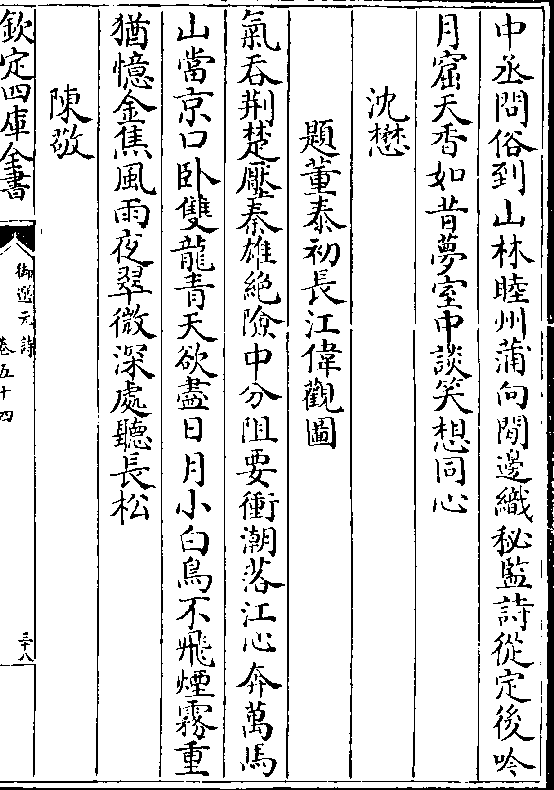 中丞問俗到山林睦州蒲向閒邊織秘監詩從定後吟
月窟天香如昔夢室中談笑想同心
沈懋
題董泰初長江偉觀圖
氣吞荆楚壓秦雄絶險中分阻要衝潮落江心奔萬馬
山當京口卧雙龍青天欲盡日月小白鳥不飛煙霧重
猶憶金焦風雨夜翠微深處聽長松
陳敬
欽定四庫全書
御選元詩
卷五十四
三十八